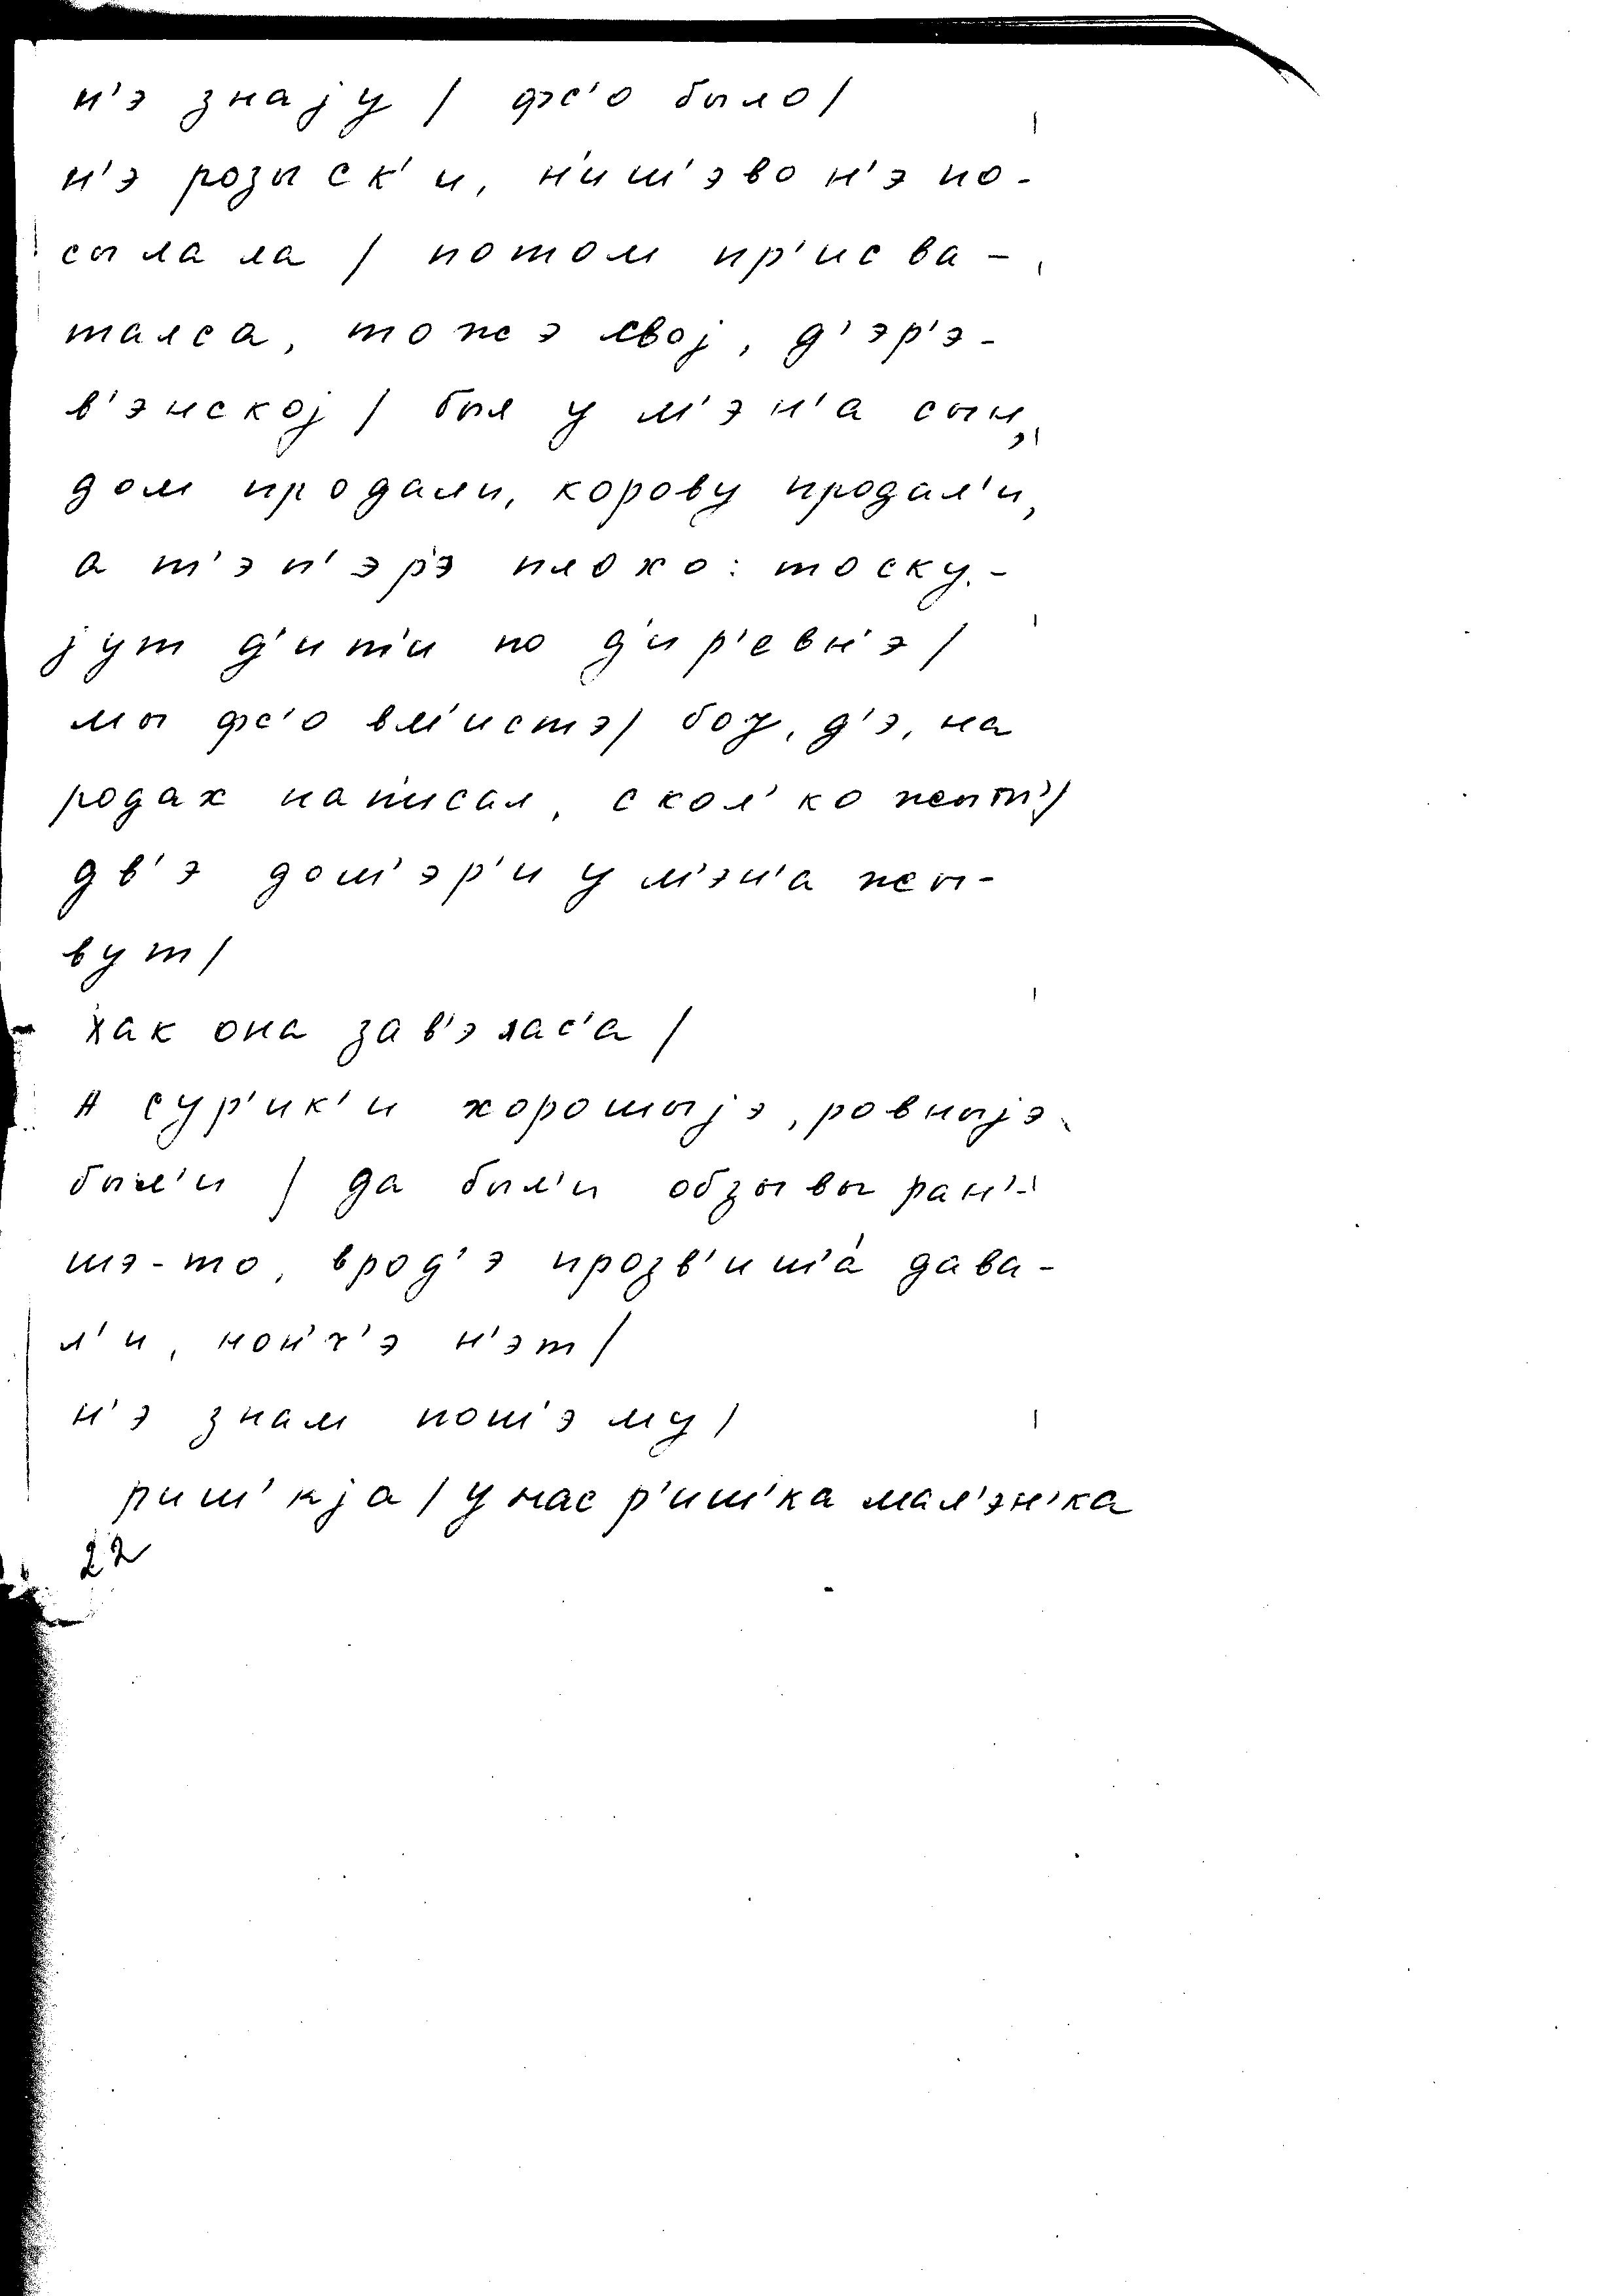 н'э знаjу / фс'о было/
н'э розыск'и, н'иш'эво н'э по-
сылала / потом пр'исва-
талса, тожэ свој, д'эр'э-
в'энској / был у м'эн'а сын,
дом продали, корову продал'и,
а т'эп'эр'э плохо: тоску-
јут д'ит'и по д'ир'евн'э /
мы фс'о вм'истэ/ боγ, д'э, на
родах нап'исал, скол'ко жыт'/
дв'э дош'эр'и у м'эн'а жы-
вут/
как она зав'элас'а /
А сур'ик'и хорошыјэ, ровныјэ
был'и / да был'и обзывы ран'-
шэ-то, врод'э прозв'иш'а́ дава-
л'и, нон'ч'э н'эт /
н'э знам пош'эму /
риш'кја / у нас р'иш'ка мал'эн'ка
22